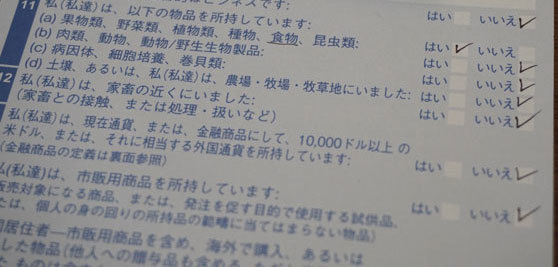 ビジネスです: はい いいえ
11 私(私達)は、以下の物品を所持しています:
(a) 果物類、野菜類、植物類、種物、食物、昆虫類: はい いいえ
(b) 肉類、動物、動物/野生生物製品: はい いいえ
(c) 病因体、細胞培養、巻貝類: はい いいえ
(d) 土壌、あるいは、私(私達)は、農場・牧場・牧草地にいました: はい いいえ
12 私(私達)は、家畜の近くにいました: はい いいえ
(家畜との接触、または処理・扱いなど)
私(私達)は、現在通貨、または、金融商品にして、10,000ドル以上 の
米ドル、または、それに相当する外国通貨を所持しています: はい いいえ
(金融商品の定義は裏面参照)
私(私達)は、市販用商品を所持しています: はい いいえ
販売対象になる商品、または、発注を促す目的で使用する試供品、
たは、個人の身の回りの所持品の範疇に当てはまらない物品)
居住者―市販用商品を含め、海外で購入、あるいは
した物品(他人への贈与品も含める、